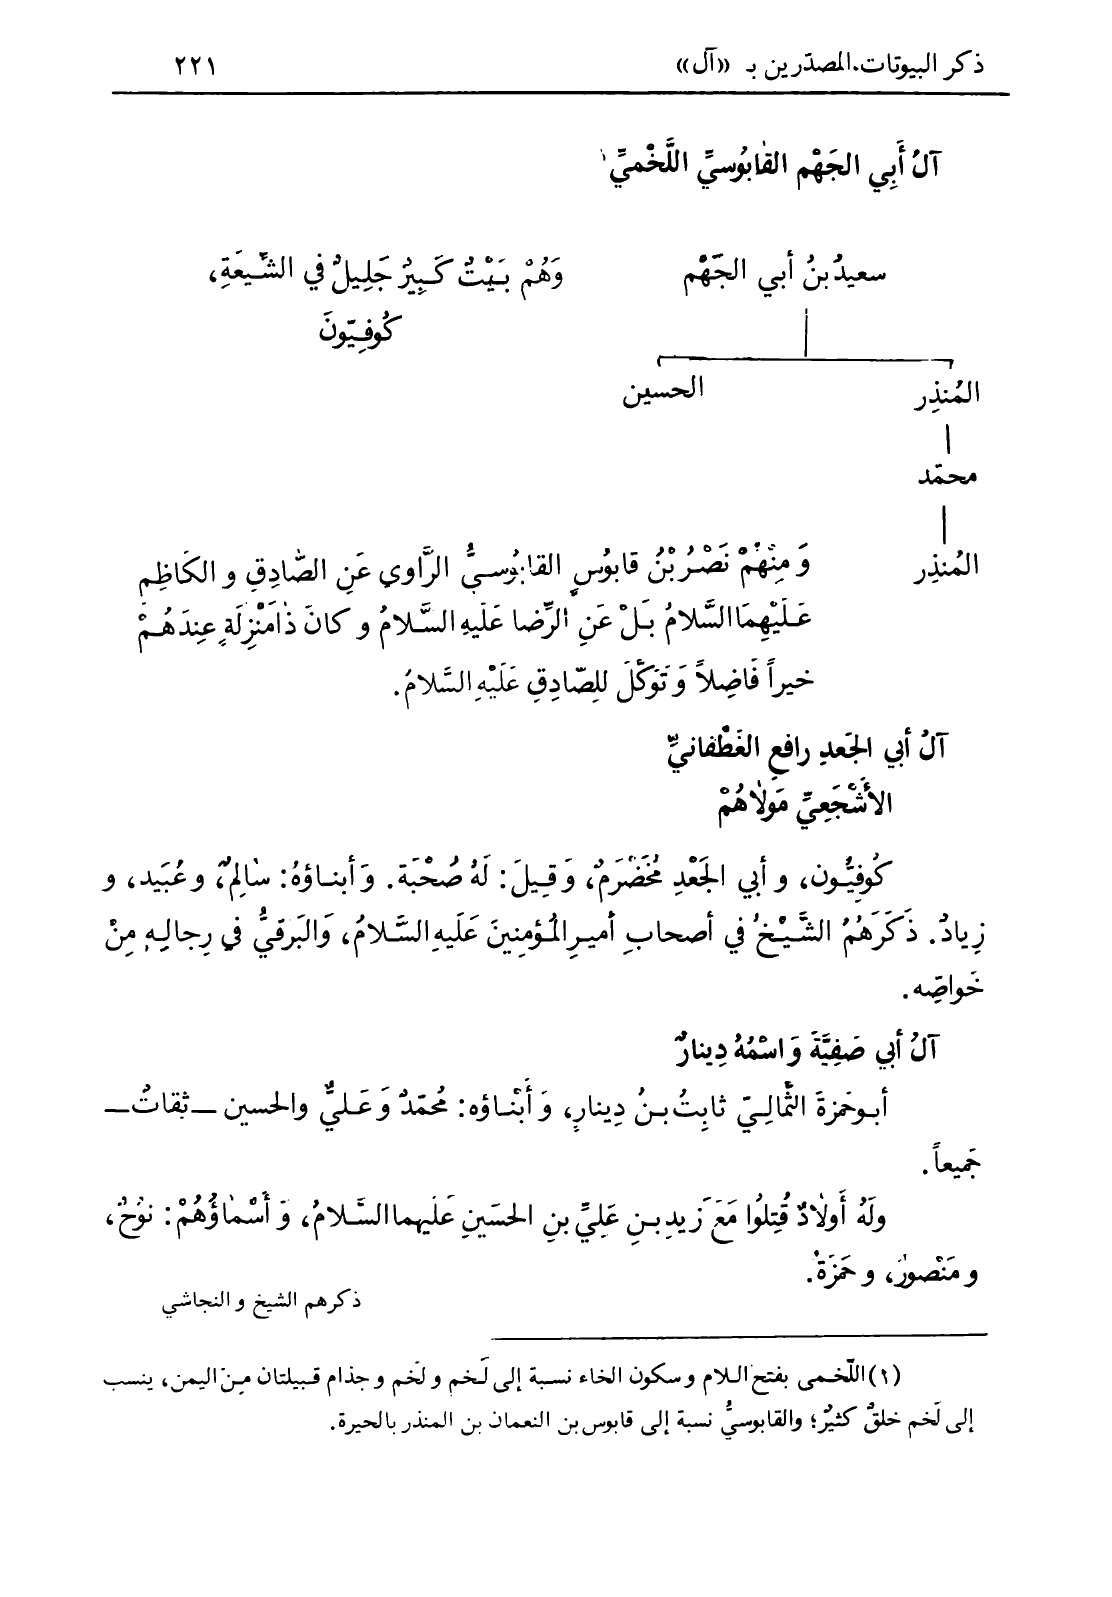 ذكر البيوتات المصدّرين بـ «آل» ٢٢١
آلُ أَبِي الجَهْم القابُوسيِّ اللَّخْميِّ ١
سعيدُ بنُ أبي الجَهْم وَهُمْ بَيْتٌ كَبِيرٌ جَلِيلٌ في الشّيعَةِ،
كُوفِيّونَ
المُنذِر الحسين
محمّد
المُنذِر وَ مِنْهُمْ نَصْرُ بْنُ قابُوسٍ القابُوسيُّ الرَّاوي عَنِ الصّادِقِ و الكَاظِمِ
عَلَيْهِمَا السَّلامُ بَلْ عَنِ الرِّضا عَلَيهِ السَّلامُ و كانَ ذا مَنْزِلَةٍ عِندَهُمْ
خيراً فَاضِلاً وَ تَوَكَّلَ لِلصّادِقِ عَلَيْهِ السَّلامُ.
آلُ أبي الجَعدِ رافعِ الغَطْفانيِّ
الأَشْجَعِيِّ مَولاهُمْ
كُوفِيُّون، و أبي الجَعْدِ مُخَضْرَمٌ، وَ قيلَ: لَهُ صُحْبَة. وَ أبناؤهُ: سالِمٌ، و عُبَيد، و
زِيادٌ. ذَكَرَهُمُ الشَّيْخُ في أصحابِ أميرِ المُؤمِنينَ عَلَيهِ السَّلامُ، وَالبَرقيُّ في رِجالِهِ مِنْ
خَواصِّه.
آلُ أبي صَفِيَّةَ وَ اسْمُهُ دِينارٌ
أبو حَمزةَ الثُّمالِيّ ثابِتُ بنُ دِينارٍ، وَ أَبْناؤه: مُحَمّدٌ وَ عَليٌّ والحسين ـ ثقاتٌ ـ
جَميعاً.
ولَهُ أَولادٌ قُتِلُوا مَعَ زَيدِ بنِ عَلِيِّ بنِ الحَسَينِ عَلَيهما السَّلامُ، وَ أَسْماؤُهُمْ: نوُحٌ،
و مَنْصورٌ، و حَمزَةُ.
ذكرهم الشيخ و النجاشي
(١) اللّخمي بفتح اللام و سكون الخاء نسبة إلى لَخم و لَخم و جذام قبيلتان من اليمن، ينسب
إلى لَخم خلقٌ كثيرٌ؛ والقابوسيُّ نسبة إلى قابوس بن النعمان بن المنذر بالحيرة.